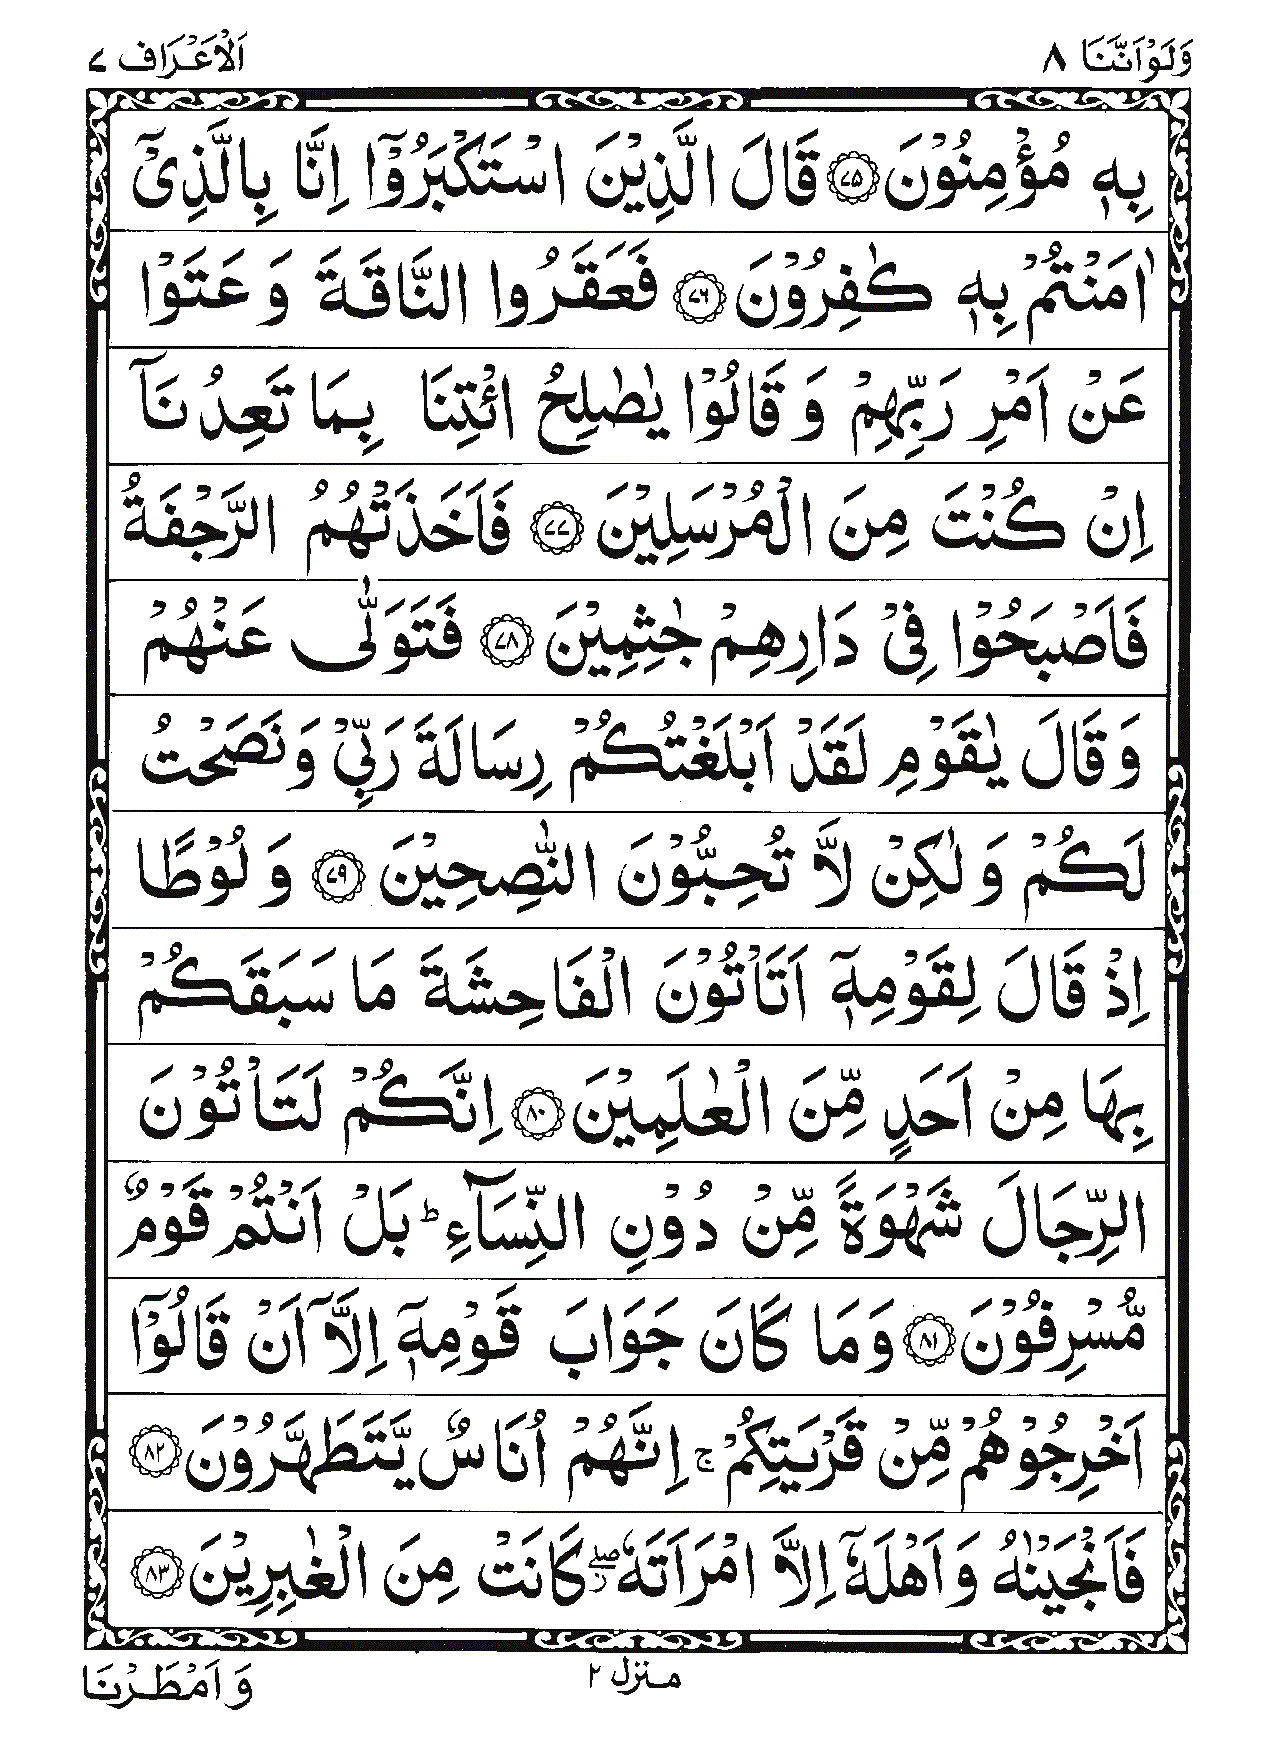 وَلَوْاَنَّنَا ٨
اَلْاَعْرَاف ٧
بِهٖ مُؤْمِنُوْنَ ۝٧٥ قَالَ الَّذِيْنَ اسْتَكْبَرُوْۤا اِنَّا بِالَّذِيْۤ
اٰمَنْتُمْ بِهٖ كٰفِرُوْنَ ۝٧٦ فَعَقَرُوا النَّاقَةَ وَ عَتَوْا
عَنْ اَمْرِ رَبِّهِمْ وَ قَالُوْا يٰصٰلِحُ ائْتِنَا بِمَا تَعِدُنَاۤ
اِنْ كُنْتَ مِنَ الْمُرْسَلِيْنَ ۝٧٧ فَاَخَذَتْهُمُ الرَّجْفَةُ
فَاَصْبَحُوْا فِيْ دَارِهِمْ جٰثِمِيْنَ ۝٧٨ فَتَوَلّٰى عَنْهُمْ
وَ قَالَ يٰقَوْمِ لَقَدْ اَبْلَغْتُكُمْ رِسَالَةَ رَبِّيْ وَ نَصَحْتُ
لَكُمْ وَ لٰكِنْ لَّا تُحِبُّوْنَ النّٰصِحِيْنَ ۝٧٩ وَ لُوْطًا
اِذْ قَالَ لِقَوْمِهٖۤ اَتَاْتُوْنَ الْفَاحِشَةَ مَا سَبَقَكُمْ
بِهَا مِنْ اَحَدٍ مِّنَ الْعٰلَمِيْنَ ۝٨٠ اِنَّكُمْ لَتَاْتُوْنَ
الرِّجَالَ شَهْوَةً مِّنْ دُوْنِ النِّسَآءِ ؕ بَلْ اَنْتُمْ قَوْمٌ
مُّسْرِفُوْنَ ۝٨١ وَ مَا كَانَ جَوَابَ قَوْمِهٖۤ اِلَّاۤ اَنْ قَالُوْۤا
اَخْرِجُوْهُمْ مِّنْ قَرْيَتِكُمْ ۚ اِنَّهُمْ اُنَاسٌ يَّتَطَهَّرُوْنَ ۝٨٢
فَاَنْجَيْنٰهُ وَ اَهْلَهٗۤ اِلَّا امْرَاَتَهٗ ۖ٘ كَانَتْ مِنَ الْغٰبِرِيْنَ ۝٨٣
منزل ٢
وَ اَمْطَرْنَا